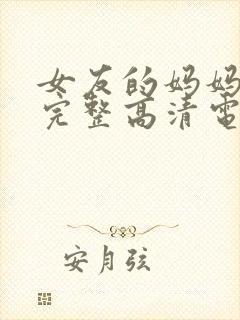 女友的妈妈
完整高清電
安月弦